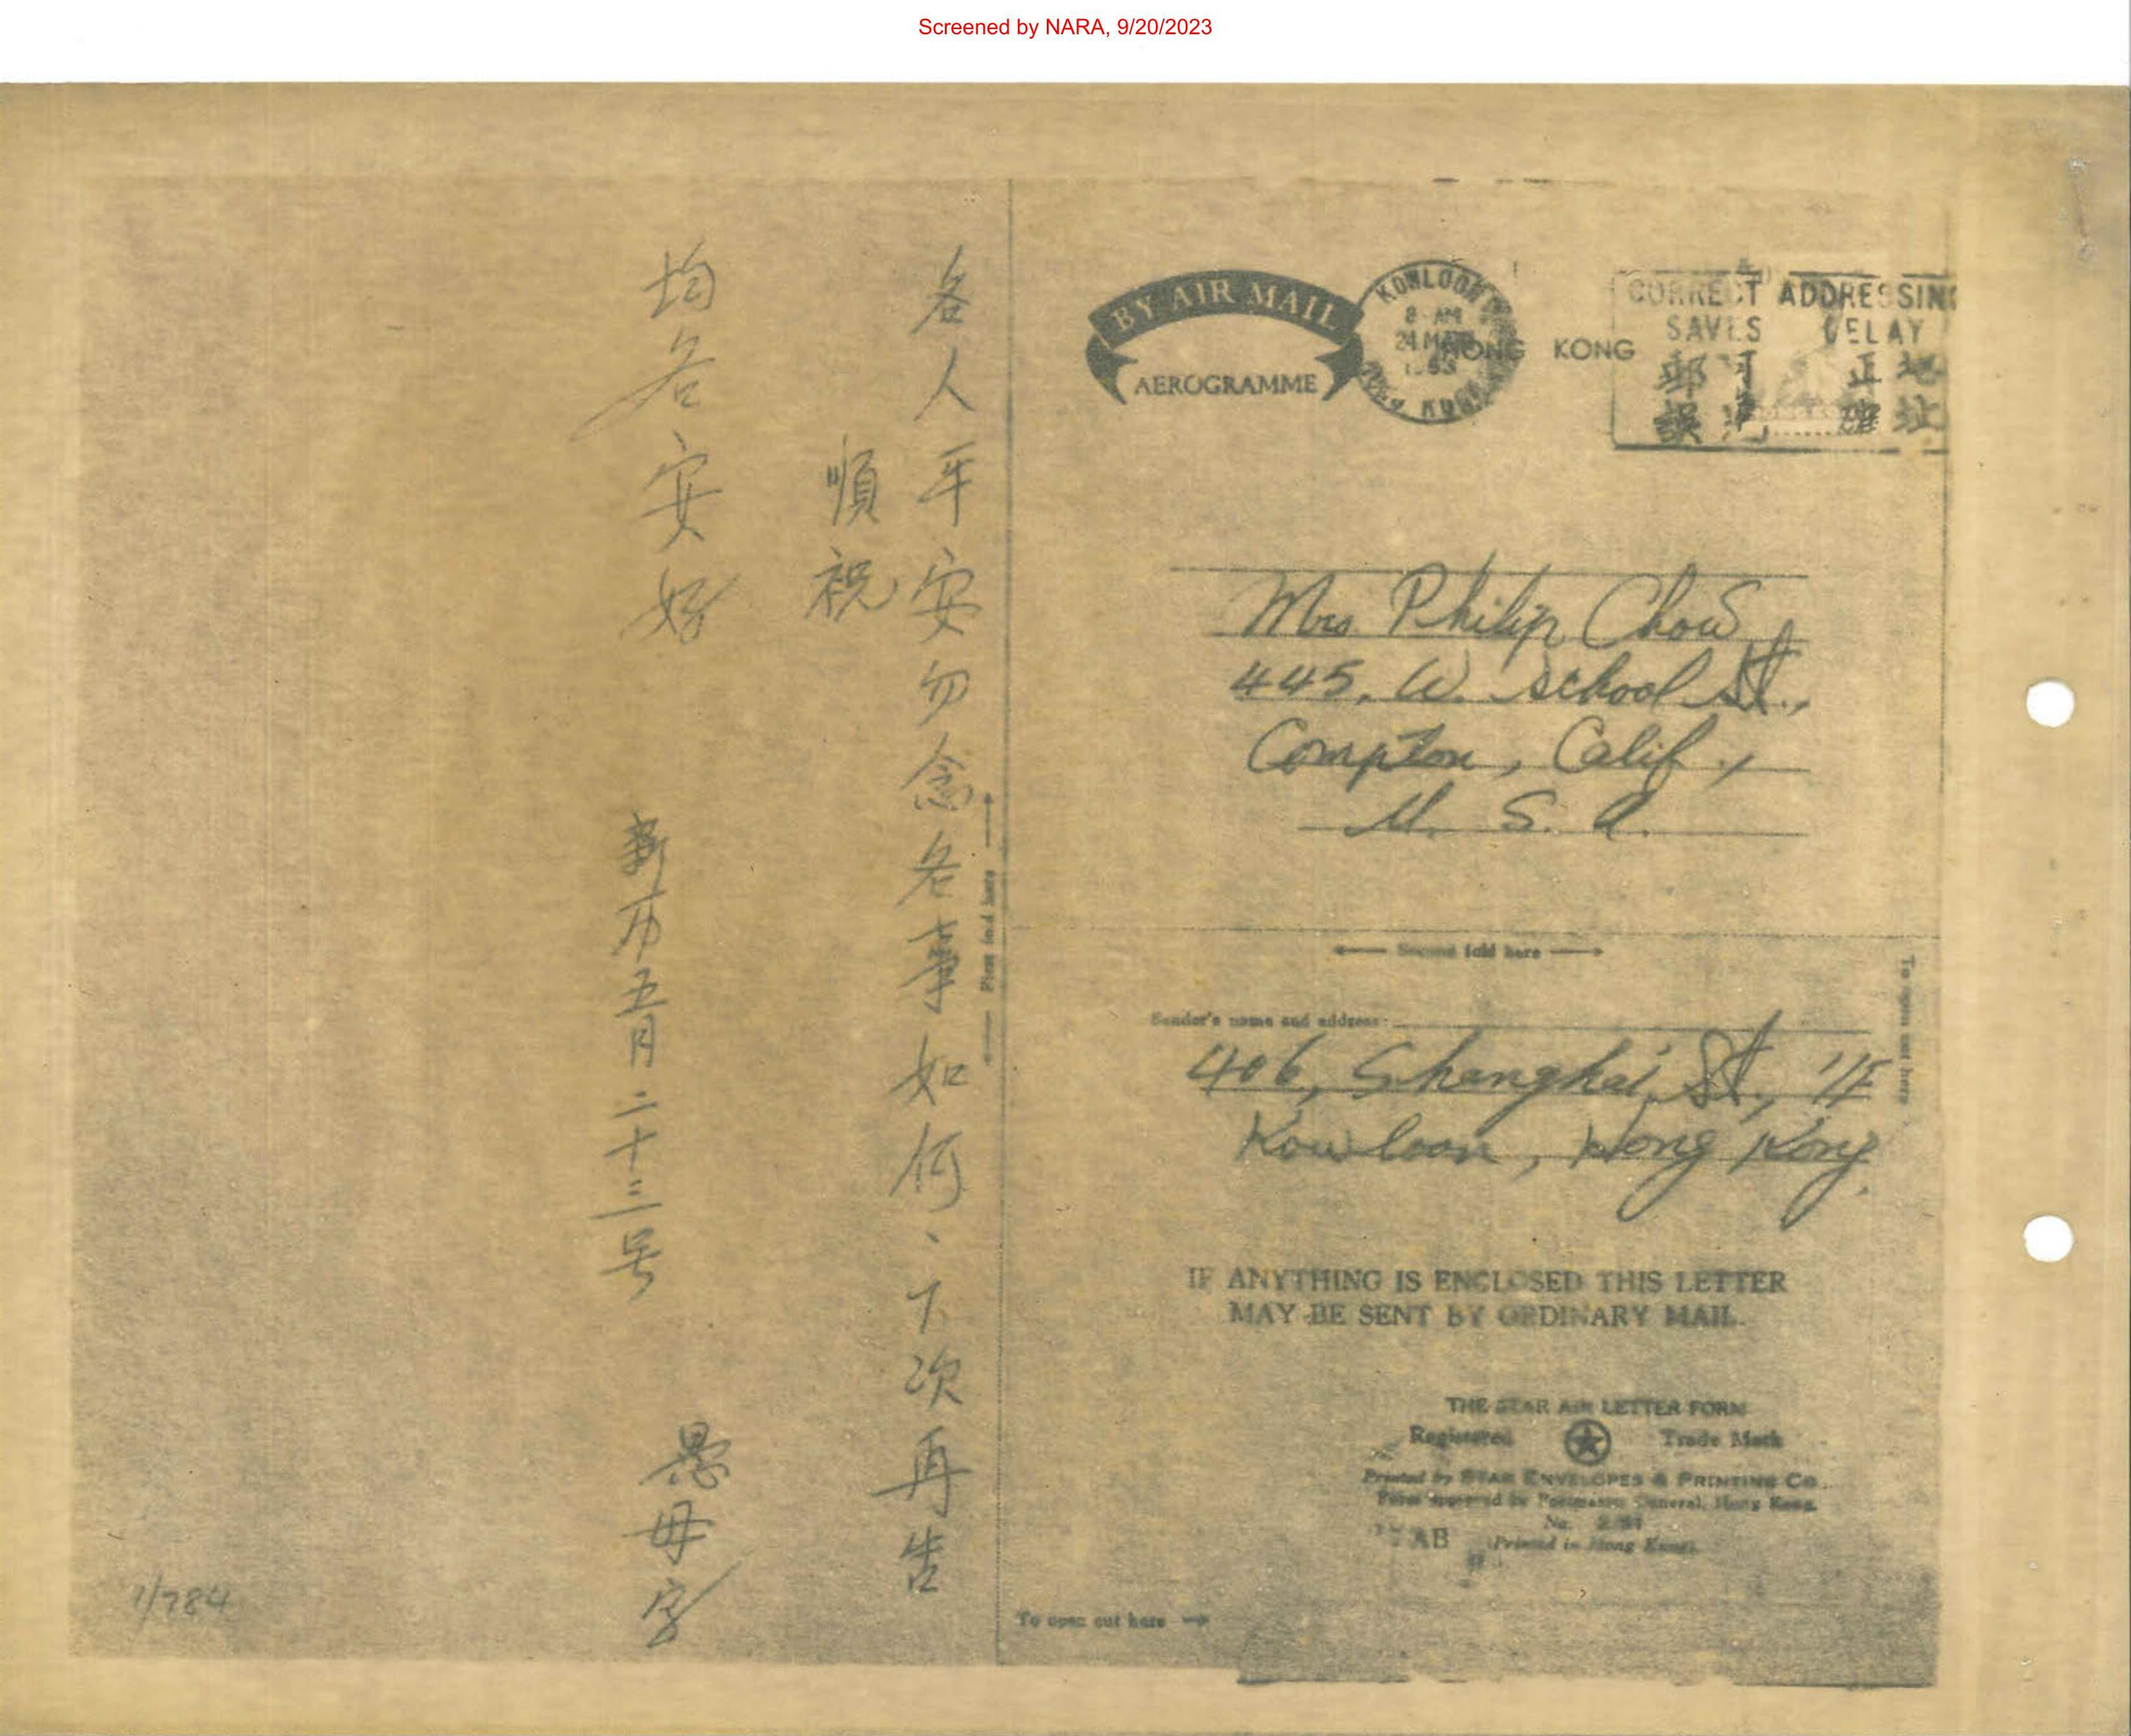 Screened by NARA, 9/20/2023
各人平安勿念各事如何、下次再告
順祝
均各安好
新市五月二十三号
愚母字
1/784
First fold here
BY AIR MAIL
AEROGRAMME
KOWLOON
8 AM
24 MA
HONG KONG
HONG KONG
CORRECT ADDRESSING
SAVES DELAY
地址
正確
郵
誤
Mrs Philip Chow
445, W. School St.,
Compton, Calif.,
U. S. A.
Second fold here
To open cut here
Sender's name and address:
406, Shanghai St., 1/F
Kowloon, Hong Kong.
IF ANYTHING IS ENCLOSED THIS LETTER
MAY BE SENT BY ORDINARY MAIL.
THE STAR AIR LETTER FORM
Registered Trade Mark
Printed by STAR ENVELOPES & PRINTING CO.
Form approved by Postmaster General, Hong Kong.
No.
AB (Printed in Hong Kong).
To open cut here